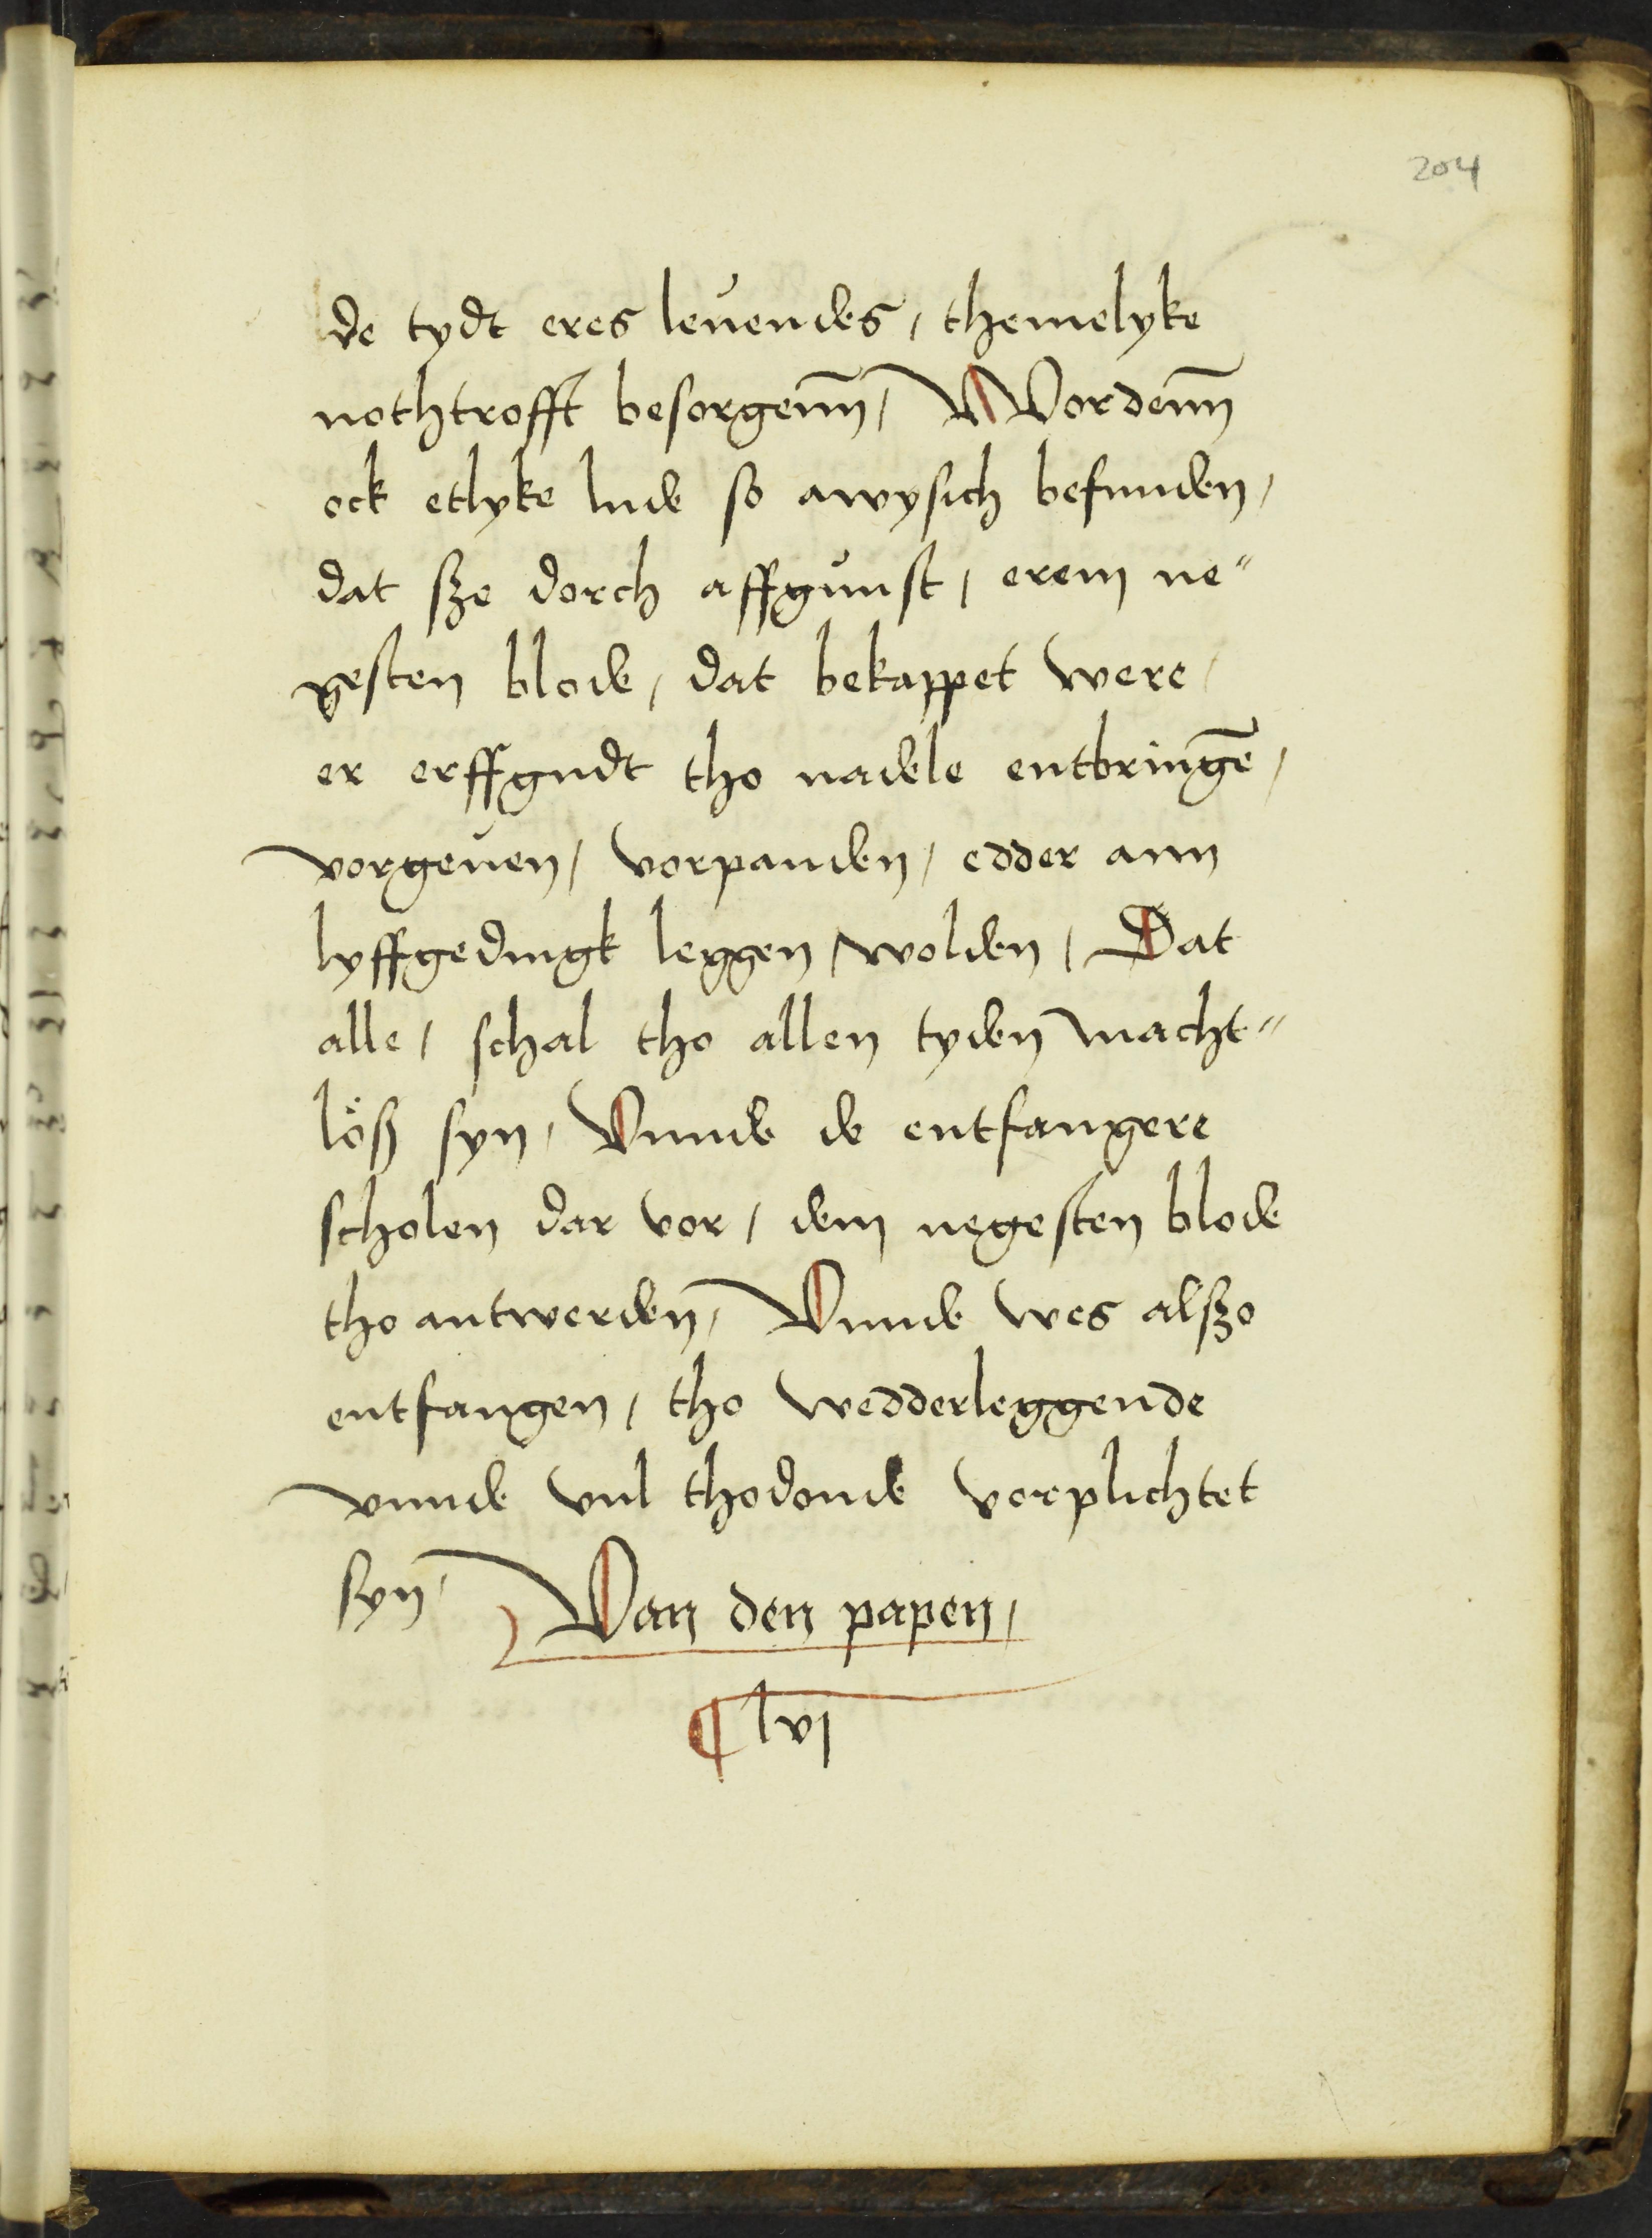 204
de tydt eres leuendes, themelyke
nothtrofft besorgenn̄, Wordenn̄
ock etlyke lude so awysich befunden,
dat sze dorch affgunst, erem ne"
gesten blode, dat bekappet were,
er erffgudt tho nadele entbringē,
vorgeuen, vorpanden, edder ann
lyffgedingk leggen wolden, Dat
alle, schal tho allen tyden macht"
löß syn, Vnnde de entfangere
scholen dar vor, dem negesten blode
tho antwerden, Vnnde wes alszo
entfangen, tho wedderleggende
vnnde vul thodonde vorplichtet
syn, Van den papen,
¶ lvj